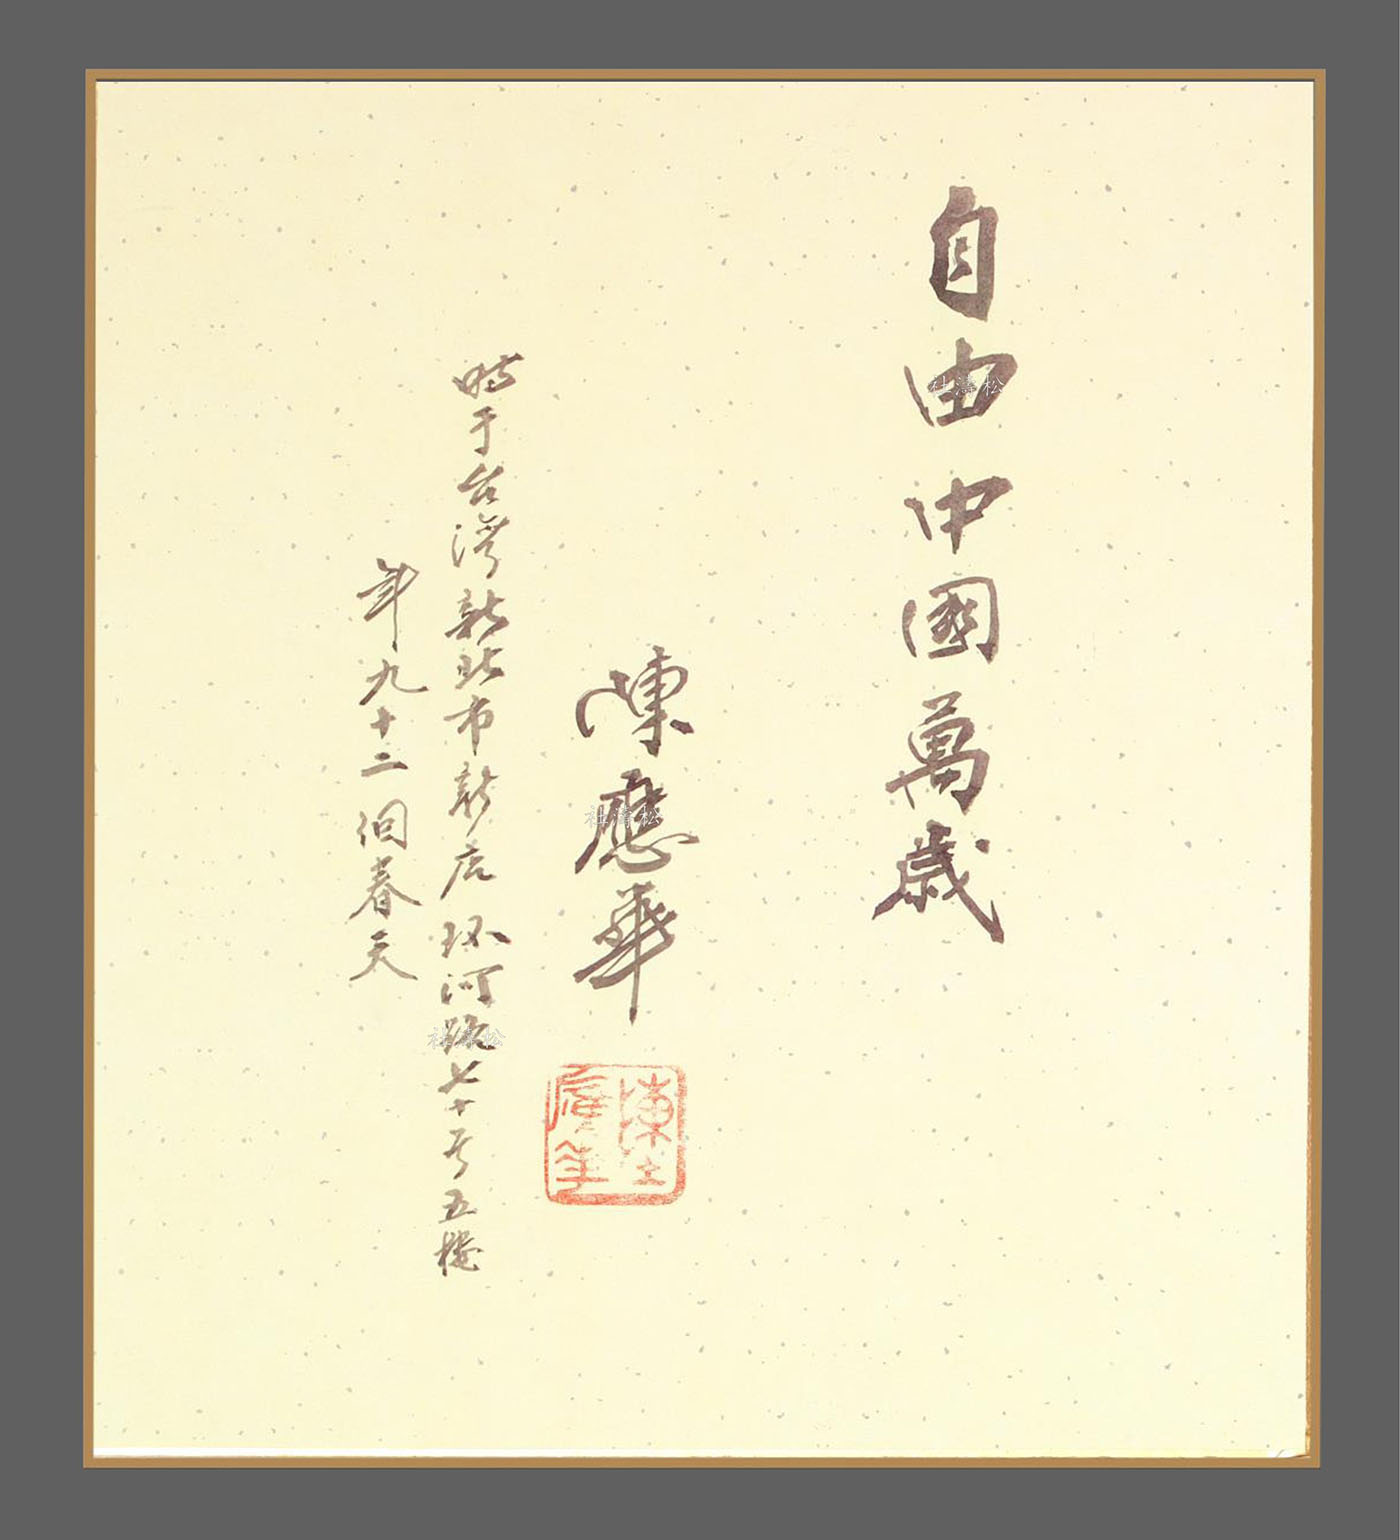 自由中國萬歲
陳應華
時于台灣新北市新店環河路七十号五樓
年九十二個春天
陳應華
松濤社
松濤社
松濤社